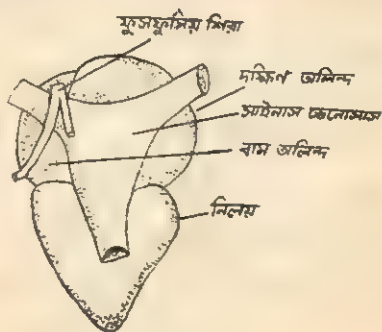 ফুসফুসিয় শিরা
দক্ষিণ অলিন্দ
সাইনাস ভেনোসাস
বাম অলিন্দ
নিলয়